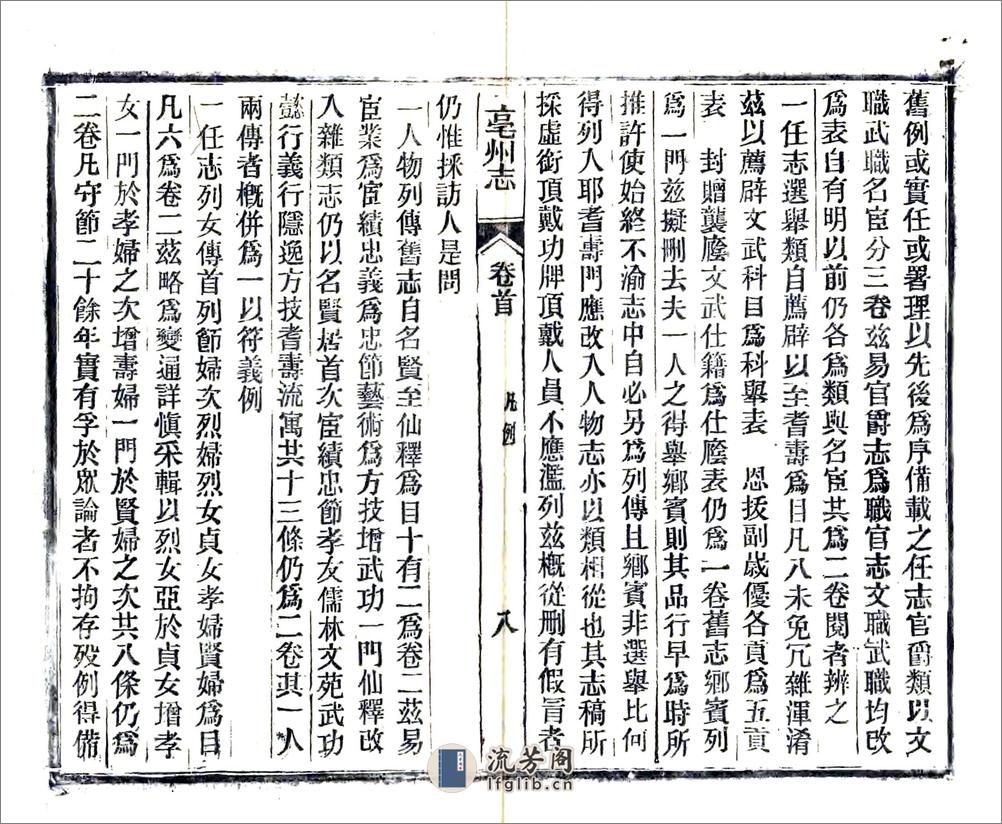 舊例或實任或署理以先後爲序備載之任志官爵類以文
職武職名宦分三卷兹易官爵志爲職官志文職武職均改
爲表自有明以前仍各爲類與名宦共爲二卷閱者辨之
一任志選舉類自薦辟以至耆壽爲目凡八未免冗雜渾淆
兹以薦辟文武科目爲科舉表　恩拔副歲優各貢爲五貢
表　封贈襲廕文武仕籍爲仕廕表仍爲一卷舊志鄉賓列
爲一門兹擬刪去夫一人之得舉鄉賓則其品行早爲時所
推許使始終不渝志中自必另爲列傳且鄉賓非選舉比何
得列入耶耆壽門應改入人物志亦以類相從也其志稿所
採虛銜頂戴功牌頂戴人員不應濫列兹槪從刪有假冒者
亳州志　卷首　凡例　八
仍惟採訪人是問
一人物列傳舊志自名賢至仙釋爲目十有二爲卷二兹易
宦業爲宦績忠義爲忠節藝術爲方技增武功一門仙釋改
入雜類志仍以名賢居首次宦績忠節孝友儒林文苑武功
懿行義行隱逸方技耆壽流寓共十三條仍爲二卷其一人
兩傳者槪併爲一以符義例
一任志列女傳首列節婦次烈婦烈女貞女孝婦賢婦爲目
凡六爲卷二兹略爲變通詳愼采輯以烈女亞於貞女增孝
女一門於孝婦之次增壽婦一門於賢婦之次共八條仍爲
二卷凡守節二十餘年實有孚於眾論者不拘存歿例得備
流芳阁
lfglib.cn